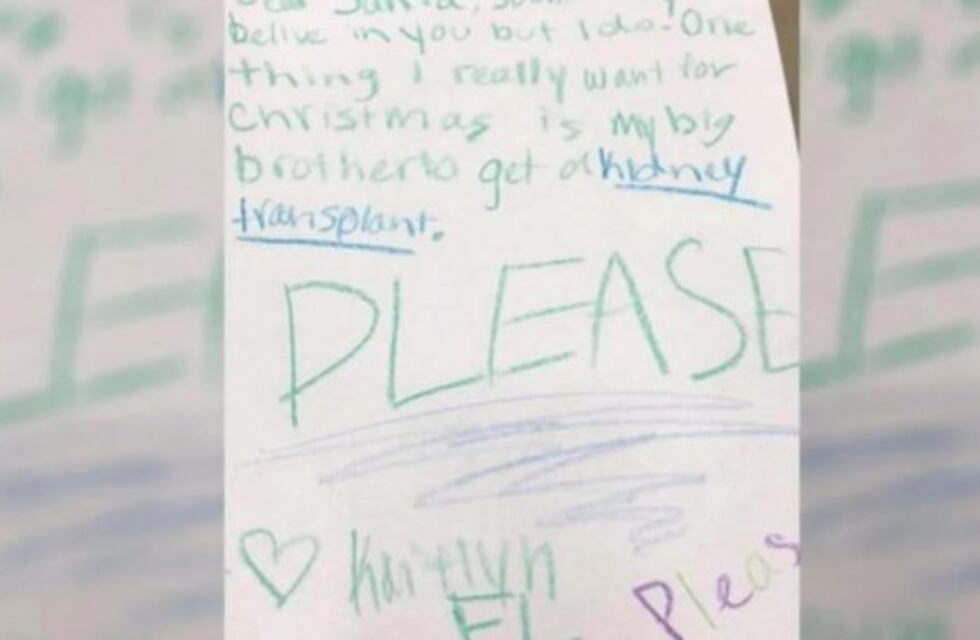 Dear Santa,
belive in you but I do! One
thing I really want for
Christmas is my big
brother to get a kidney
transplant.
PLEASE
♡ Kaitlyn
Pleas